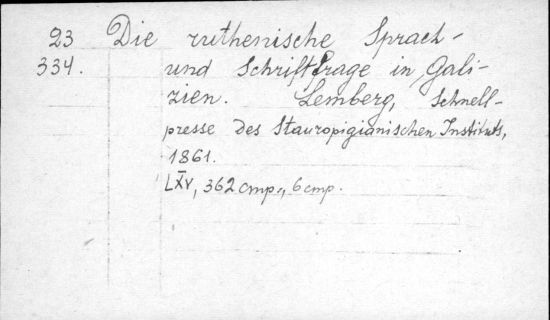 23 Die ruthenische Sprach-
334. und Schriftfrage in Gali-
zien. Lemberg, Schnell-
presse des Stauropigianischen Instituts,
1861.
LXV, 362 стр., 6 стр.